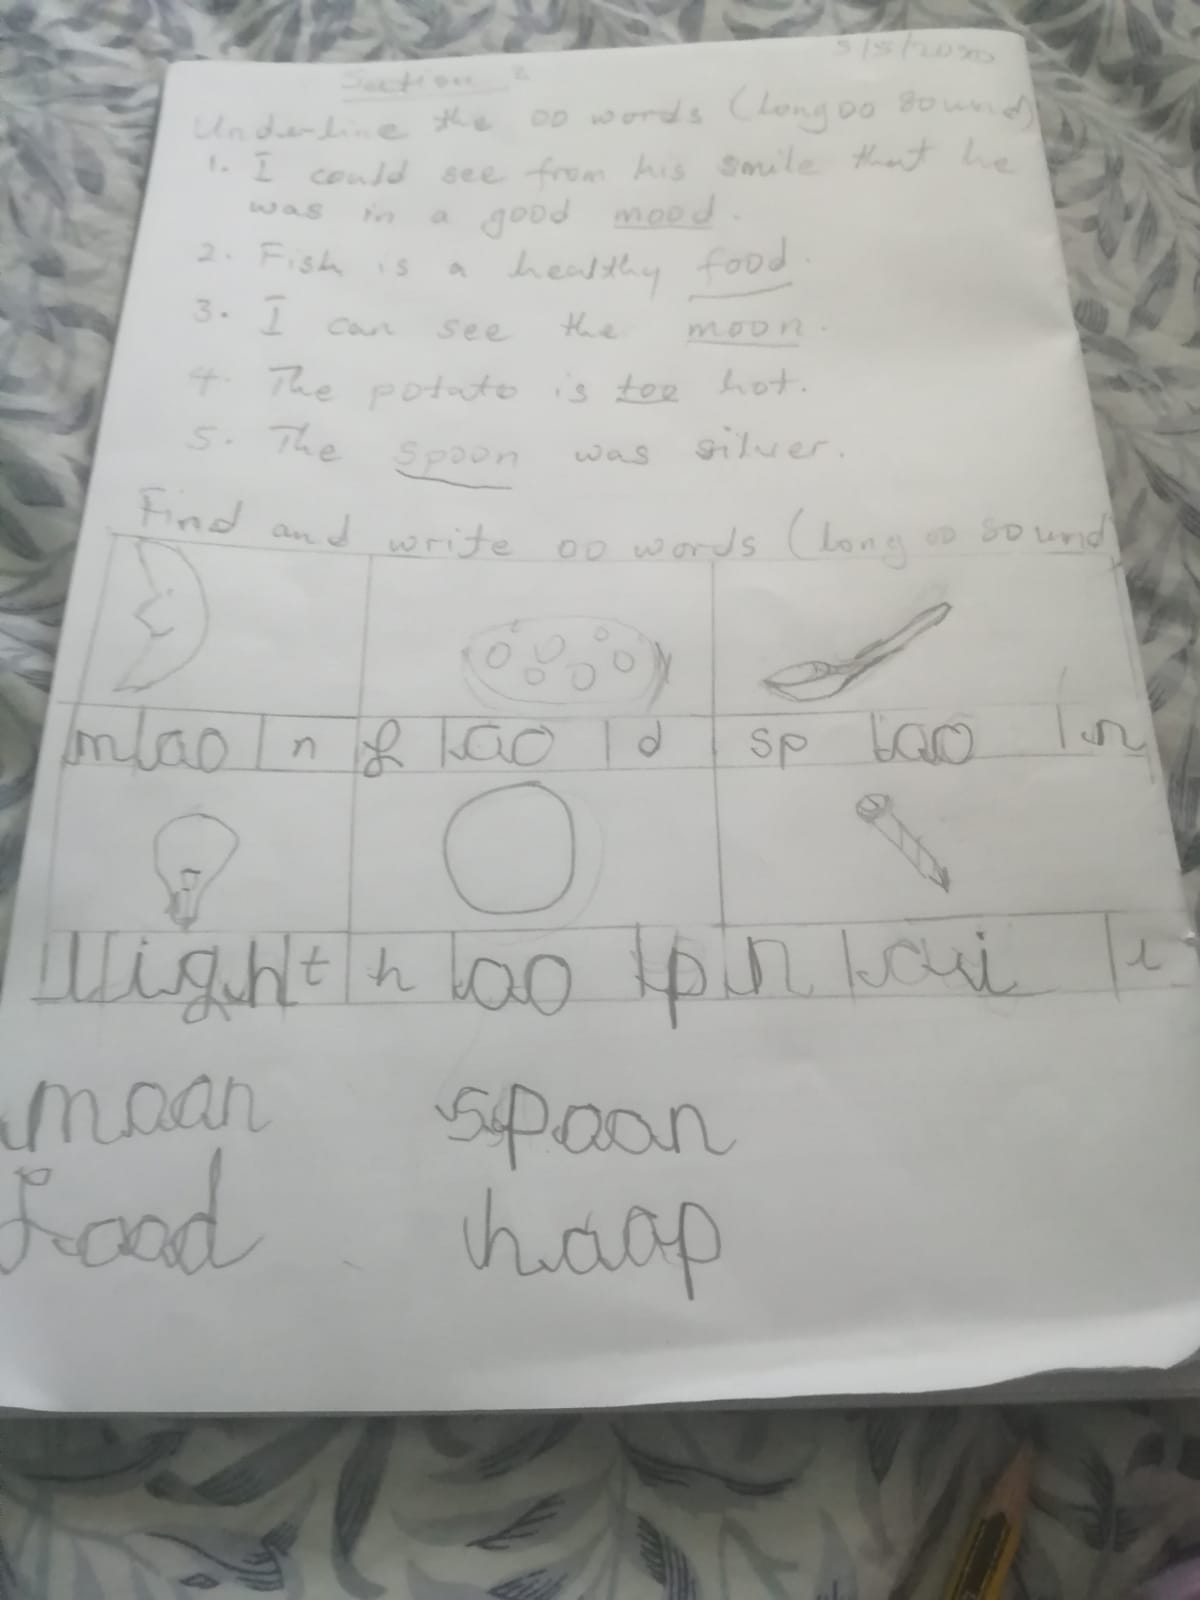 5/5/2020
Section 2
Underline the oo words (Long oo sound)
1. I could see from his smile that he
was in a good mood.
2. Fish is a healthy food.
3. I can see the moon.
4. The potato is too hot.
5. The spoon was silver.
Find and write oo words (long oo sound
m oo n f oo d sp oo n
l igh t h oo p n ai l
moon spoon
food hoop